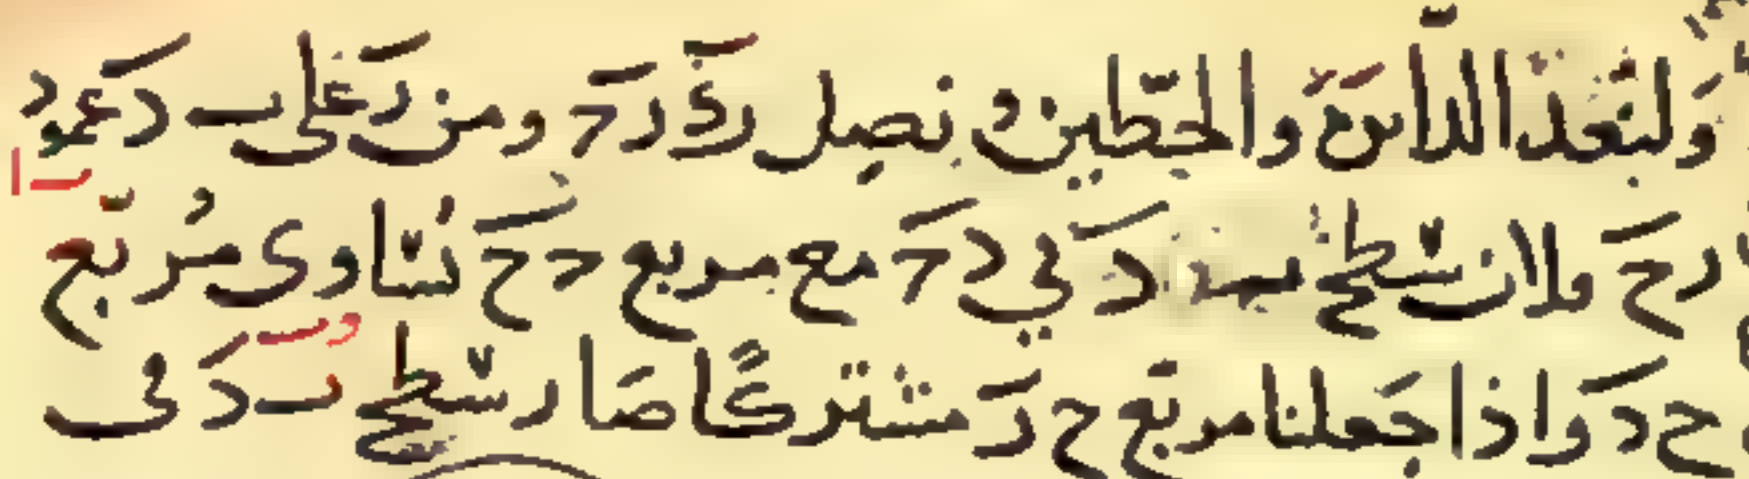 ولنعد الدائرة والخطين ونصل رد رح ومن ر على ب د عمود
رح ولان سطح ب د في د ح مع مربع رح يساوي مربع
ح د واذا جعلنا مربع ح ر مشتركًا صار سطح ب د في